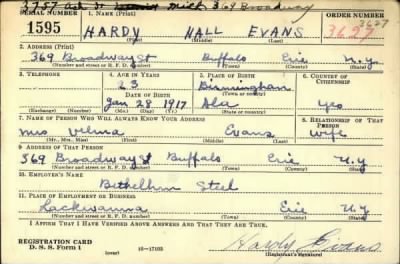 3757 Oak St Mich 369 Broadway
SERIAL NUMBER 1. NAME (Print) ORDER NUMBER
1595 HARDY HALL EVANS 3627 3627
(First) (Middle) (Last)
2. ADDRESS (Print)
369 Broadway St Buffalo Erie N.Y.
(Number and street or R. F. D. number) (Town) (County) (State)
3. TELEPHONE 4. AGE IN YEARS 5. PLACE OF BIRTH 6. COUNTRY OF CITIZENSHIP
23 Birmingham
DATE OF BIRTH (Town or county)
Jan 28 1917 Ala Yes
(Exchange) (Number) (Mo.) (Day) (Yr.) (State or country)
7. NAME OF PERSON WHO WILL ALWAYS KNOW YOUR ADDRESS 8. RELATIONSHIP OF THAT PERSON
Mrs Velma Evans Wife
(Mr., Mrs., Miss) (First) (Middle) (Last)
9. ADDRESS OF THAT PERSON
369 Broadway St Buffalo Erie N.Y
(Number and street or R. F. D. number) (Town) (County) (State)
10. EMPLOYER'S NAME
Bethelhem Steel
11. PLACE OF EMPLOYMENT OR BUSINESS
Lackwanna Erie N.Y
(Number and street or R. F. D. number) (Town) (County) (State)
I AFFIRM THAT I HAVE VERIFIED ABOVE ANSWERS AND THAT THEY ARE TRUE.
REGISTRATION CARD
D. S. S. Form 1 (over) 16—17105 Hardy Evans
(Registrant's signature)